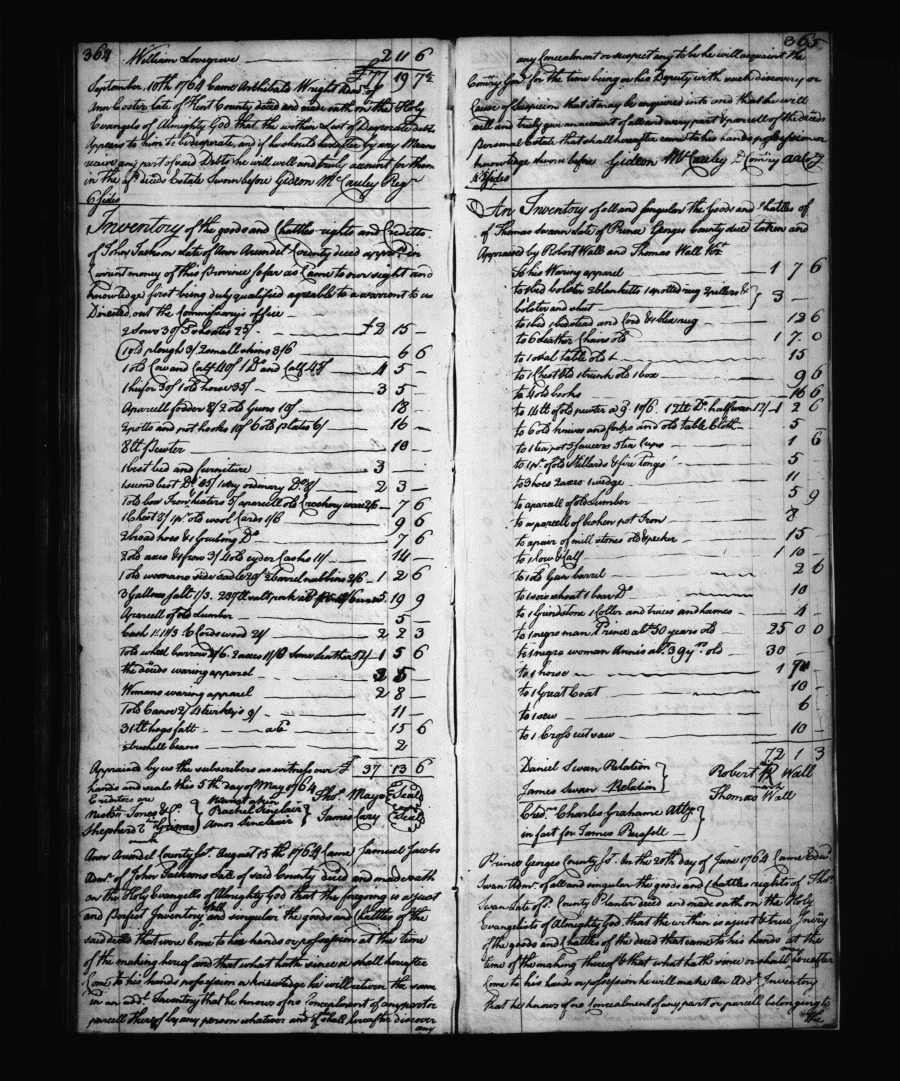 364
William Lovegrove 2 11 6
£77 19 7½
September 10th 1764 Came Archibald Wright Admr. of
Ann Coster late of Kent County deced and made oath on the Holy
Evangels of Almighty God that the within List of Desperate debts
Appears to him to be desperate, and if he should hereafter by any Means
receive any part of said Debts he will well and truly account for them
in the sd. deceds Estate Sworn before Gideon McCauley Regr
6 sides
Inventory of the goods and Chattles rights and Credits
of John Jackson Late of Ann Arundel County deced appd. in
Current money of this Province so far as Came to our sight and
knowledge first being duly qualified agreable to a warrant to us
Directed out the Commissary's office
2 Sows 30/ 5 shoates 25/ £2 15 -
1 old plough 3/ 2 small chains 3/6 6 6
1 old Cow and Calf 40/ 1 Do and Calf 45/ 4 5 -
1 heifer 30/ 1 old horse 35/ 3 5 -
A parcell fodder 8/ 2 old Guns 10/ 18 -
2 potts and pot hooks 10/ 6 old plates 6/ 16 -
8 lb Pewter 10 -
1 best bed and furniture 3 - -
1 second best Do 35/ 1 very ordinary Do 8/ 2 3 -
1 old box Iron heaters 5/ a parcell old Crockery ware 2/6 7 6
1 Chest 8/ 1 pr. old wool Cards 1/6 9 6
2 broad hoes & 1 Grubing Do 7 6
2 old axes & 1 frow 3/ 4 old cyder Casks 11/ 14 -
1 old womans side sadle 20/ 2 barrel 2/6 1 2 6
3 Gallons salt 1/3 5 19 9
A parcell of old Lumber 5 -
Cash 1:1:3 6 Cords wood 21/ 2 2 3
1 old wheel barrow 2/6 2 axes 11/ Some Leather 12/ 1 5 6
the deceds waring apparel 2 5 -
Womans waring apparel 2 8 -
1 old Canoe 2/ 4 turkeys 9/ 11 -
31 lb hogs fatt 15 6
1 bushell beans 2
£ 37 13 6
Appraised by us the subscribers as witness our
hands and seals this 5th day of May 1764
Creditors are
Nichs. Jones & Co.
Shepherd Grimes
mark
Nearest akin
Rachel Sinclair
Amos Sinclair
Thos. Mayo Seal
James Cary Seal
Ann Arundel County Sct. August 15th 1764 Came Samuel Jacobs
Admr. of John Jacksons Late of said County deced and made oath
on the Holy Evangells of Almighty God that the foregoing is a just
and perfect Inventory of all and singular the goods and Chattles of the
said deced that were Come to his hands or possession at the time
of the making hereof and that what hath since or shall hereafter
Come to his hands possession or knowledge he will return the same
in an addl. Inventory that he knows of no Concealment of any part or
parcell thereof by any person whatever and if shall hereafter discover
any
365
any Concealment or suspect any to be he will acquaint the
Comiss. Genl. for the time being or his Deputy with such discovery or
Cause of Suspicion that it may be enquired into and that he will
well and truly give an account of all and every part & parcell of the deceds
personal Estate that shall hereafter come to his hands possession or
knowledge Sworn before Gideon McCauley D Comry
4 Sides
An Inventory of all and singular the Goods and Chattles of
of Thomas Swann Late of Prince Georges County deced taken and
Appraised by Robert Wall and Thomas Wall Vizt
to his Waring apparel 1 7 6
to 1 bed bolster 2 blanketts 1 spotted rug 2 pillers &
bolster and sheet 3 -
to 1 bed 1 bedstead and Cord & 1 blue rug 12 6
to 6 Leather Chairs old 1 7 0
to 1 oval table old 15
to 1 Chest old 1 trunk old 1 box 9 6
to 4 old books 16 6
to 14 lb of old pewter @ 9d 10/6. 12 lb Do. half worn 12/ 1 2 6
to 6 old knives and forks and old table Cloth 5
to 1 tea pot 5 saucers 5 tea Cups 1 6
to 1 pr. of old Stillards & fire Tongs 5
to 3 hoes 2 axes 1 wedge 11
to a parcell of old Lumber 5 9
to a parcell of broken pot Iron 8
to a pair of mill stones old & pecker 15
to 1 Cow & Calf 1 10 -
to 1 old Gun barrel 2 6
to 1 sow shoat 1 boar Do 10
to 1 Grindstone 1 Coller and traces and hames 4 -
to 1 negro man Prince abt. 50 years old 25 0 0
to 1 negro woman Annis abt. 39 yrs. old 30 -
to 1 horse 1
to 1 Great Coat 10 -
to 1 sew 6
to 1 Cross cut saw 10 -
72 1 3
Daniel Swan Relation
James Swan Relation
Robert R Wall
mark
Thomas Wall
Cred. Charles Grahame Atty.
in fact for James Russell
Prince Georges County Sc. On the 20th day of June 1764 Came Edwd.
Swan Admr. of all and singular the goods and Chattles rights of Thos.
Swan Late of sd. County Planter deced and made oath on the Holy
Evangelists of Almighty God that the within is a just & true Invry
of the goods and Chattles of the deced that came to his hands at the
time of the making thereof & that what hath since or shall hereafter
Come to his hands or possession he will make An Addl. Inventory
that he knows of no Concealment of any part or parcell belonging to
the